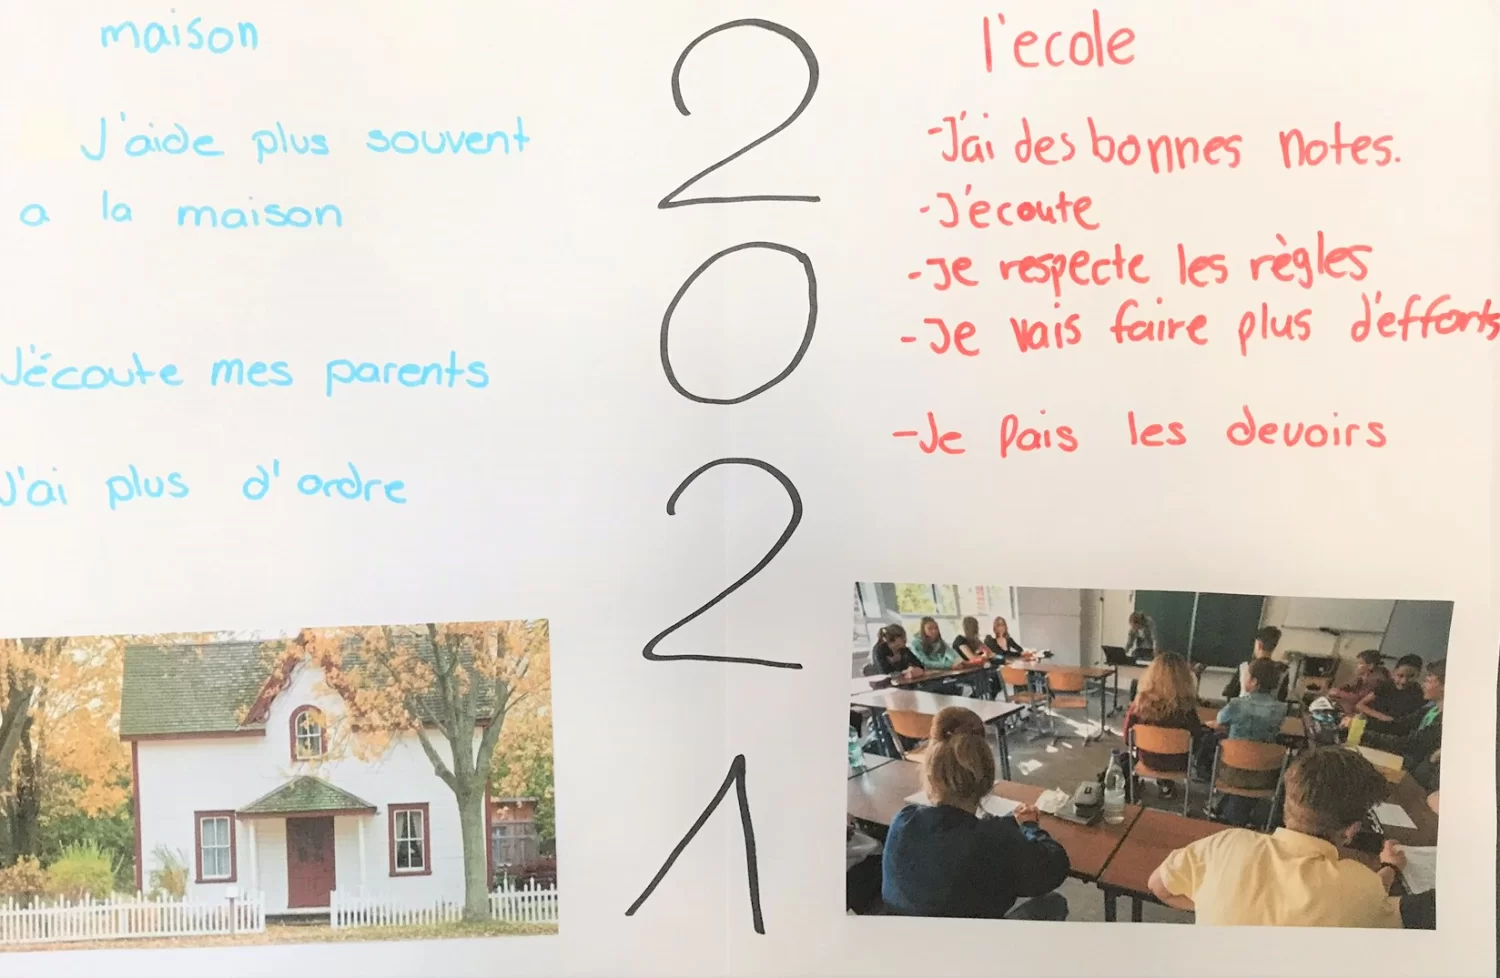 maison
J'aide plus souvent
a la maison
J'écoute mes parents
J'ai plus d'ordre
2
0
2
1
l'ecole
-J'ai des bonnes notes.
-J'écoute
-Je respecte les règles
-Je vais faire plus d'efforts
-Je pais les devoirs